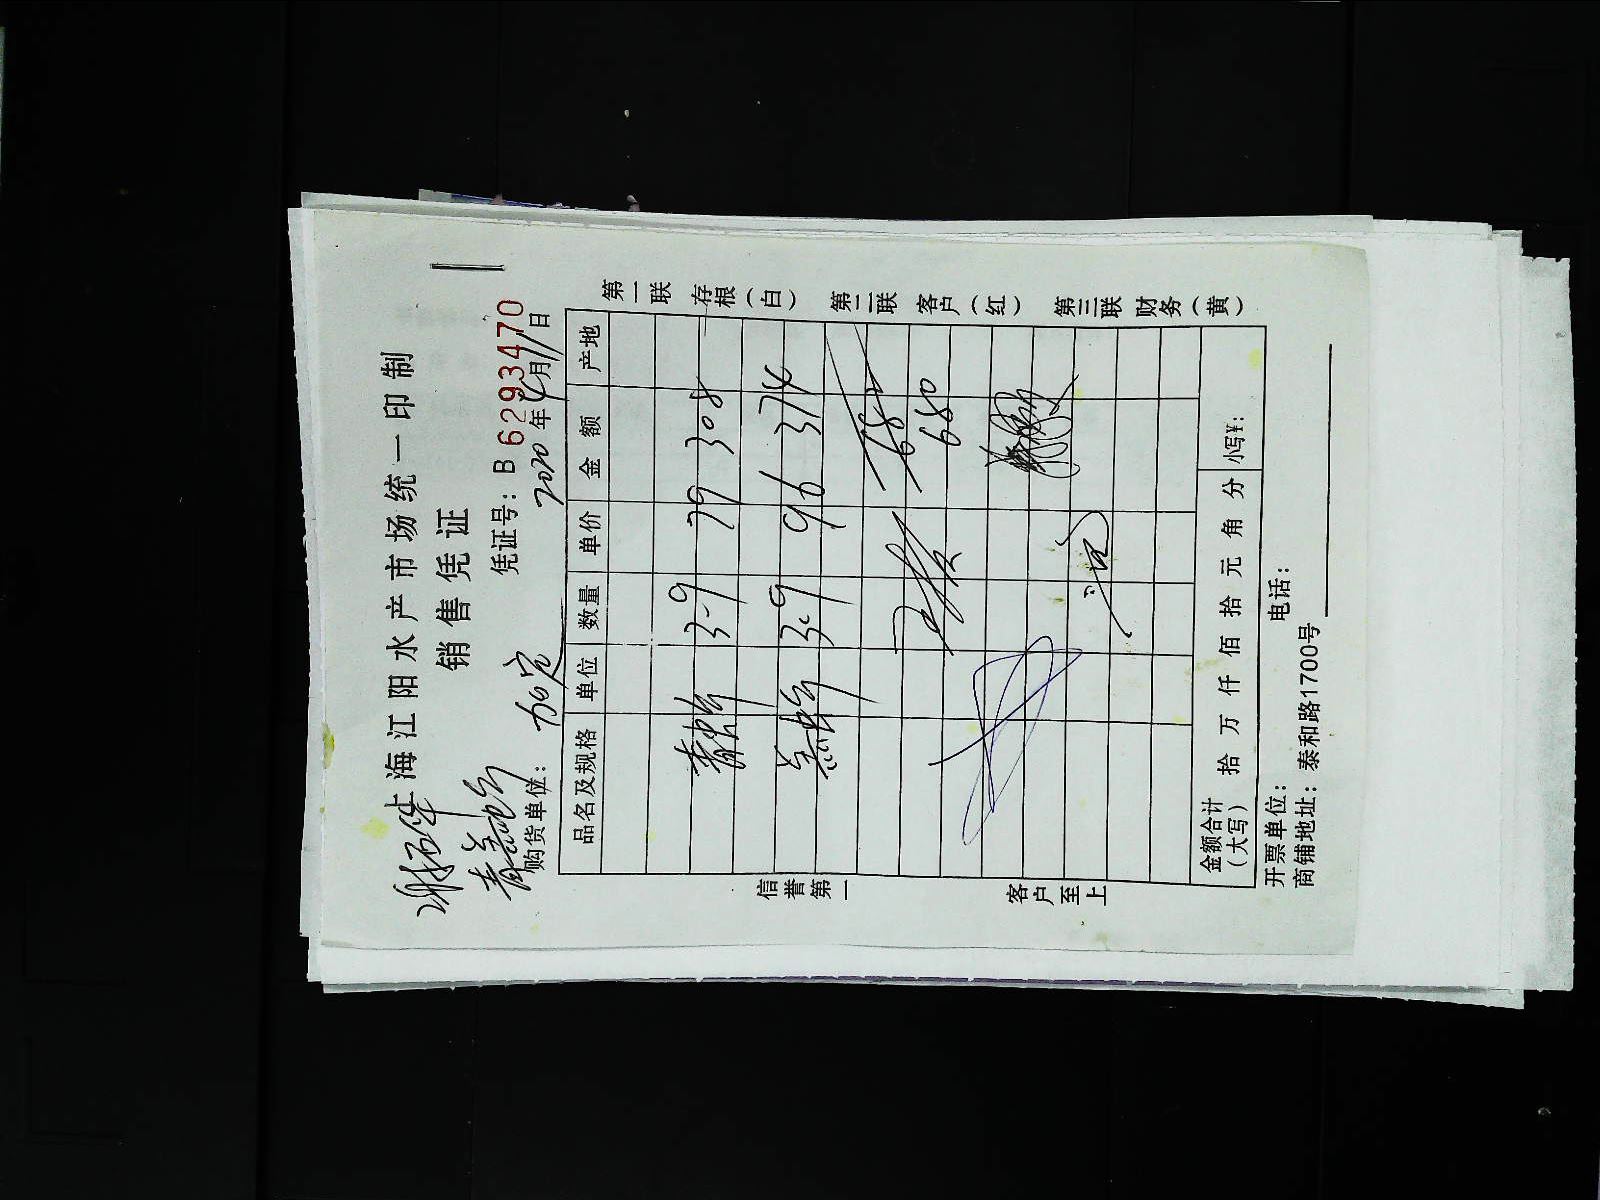 上海江阳水产市场统一印制
销售凭证
凭证号：B 6293470
2020年4月11日
购货单位：
品名及规格 单位 数量 单价 金额 产地
3.9 79 308
3.9 96 374
682
680
金额合计（大写） 拾 万 仟 佰 拾 元 角 分 小写¥：
开票单位： 电话：
商铺地址：泰和路1700号
信誉第一 客户至上
第一联 存根（白） 第二联 客户（红） 第三联 财务（黄）